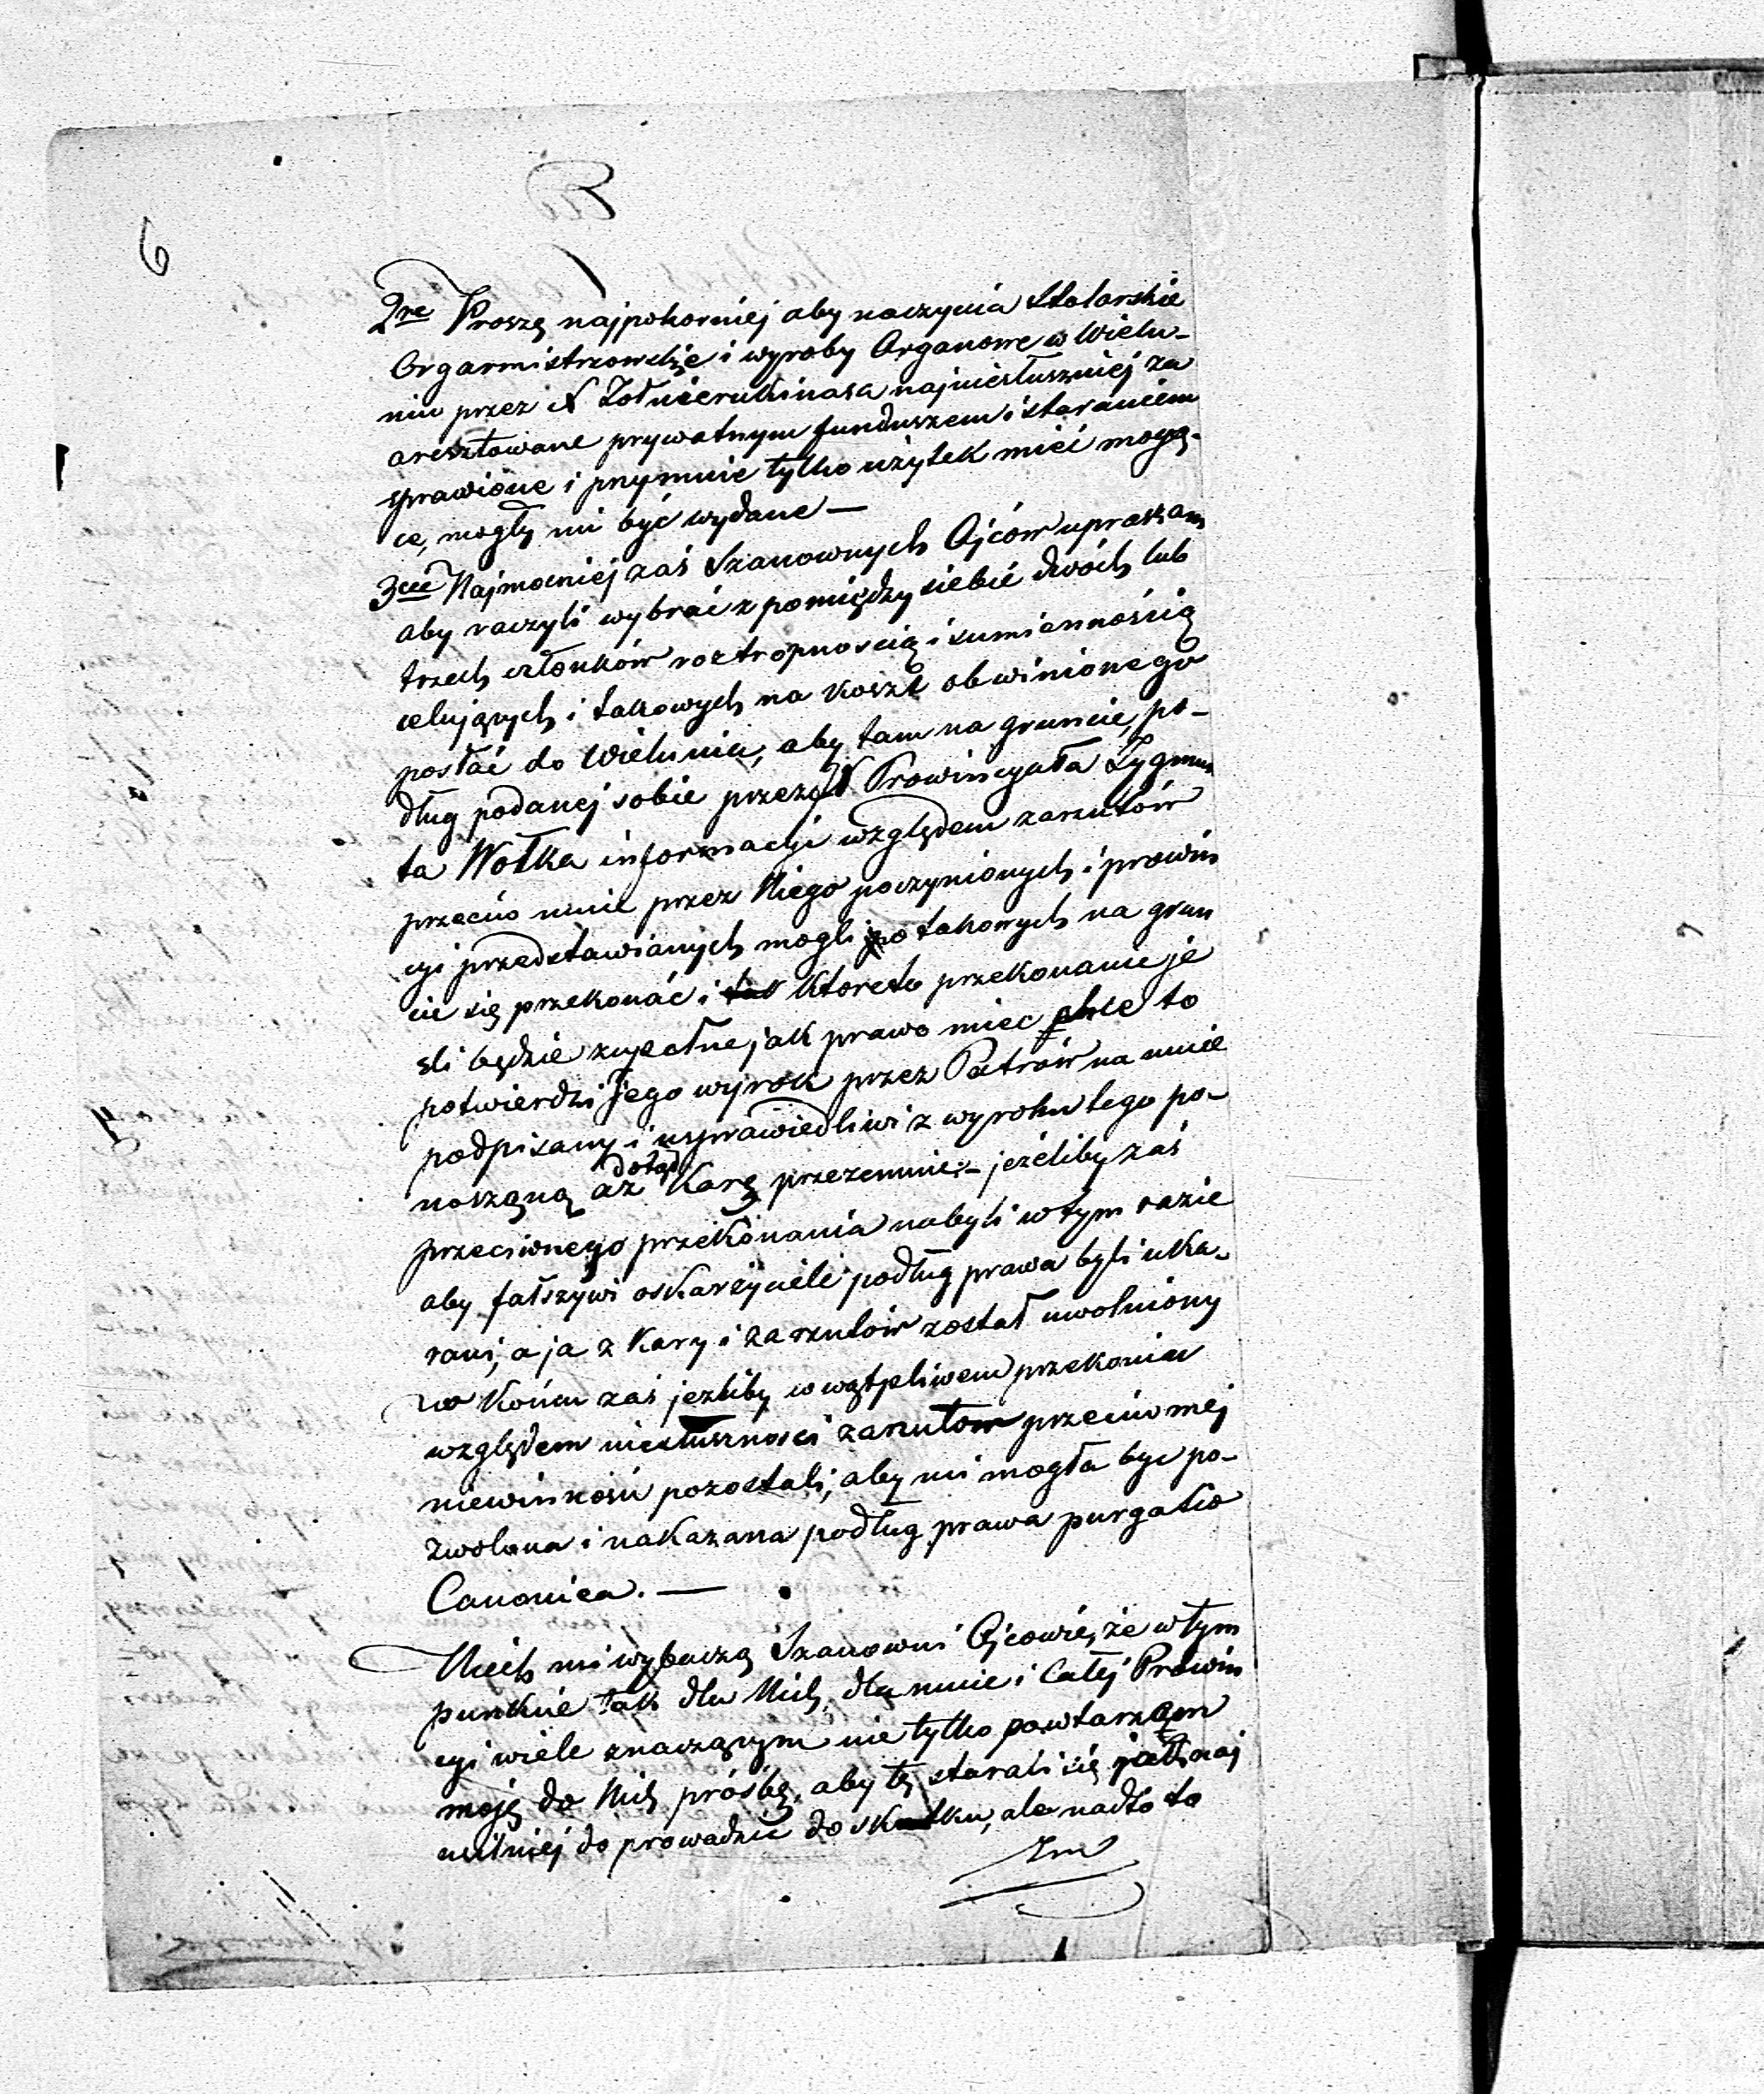 6
2re Proszę najpokorniej aby naczynia Stolarskie
Orgarmistrzowskie i wyroby Organowe w Wielu-
niu przez X najniesłuszniej za
aresztowane prywatnym funduszem i staraniem
sprawione i przymnie tylko użytek mieć mogą-
ce, mogły mi być wydane —
3cie Najmocniej zaś Szanownych Ojców upraszam
aby raczyli wybrać z pomiędzy siebie dwóch lub
trzech członków roztropnością i sumiennością
celujących i takowych na koszt obwinionego
posłać do Wielunia, aby tam na gruncie, po-
dług podanej sobie przez X Prowincyała Zygmun
ta Wołka informacji względem zarzutów
przeciw mnie przez Niego poczynionych i prowin
cyi przedstawianych mogli o takowych na grun
cie się przekonać i Ktoreto przekonanie je
sli będzie zupełne jak prawo miec chce to
potwierdzi Jego wyrok przez Patrów na mnie
podpisany i usprawiedliwi z wyroku tego po-
noszoną aż dotąd Karę przezemnie – jeżeliby zaś
przeciwnego przekonania nabyli w tym razie
aby fałszywi oskarżyciele podług prawa byli uka-
rani, a ja z Kary i zarzutów został uwolniony
w Końcu zaś jeżliby w wątpliwem przekoniu
względem niesłusznosci zarzutow przeciw mej
niewinności pozostali, aby mi mogła byc po-
zwolona i nakazana podług prawa purgatio
Canonica. —
Niech mi wybaczą Szanowni Ojcowie, że w tym
punkcie tak dla Nich, dla mnie i Całej Prowin
cyi wiele znaczącym nie tylko powtarzam
moję do Nich prośbę, aby tę starali się jak naj
usilniej do prowadzić do skutku, ale nadto to